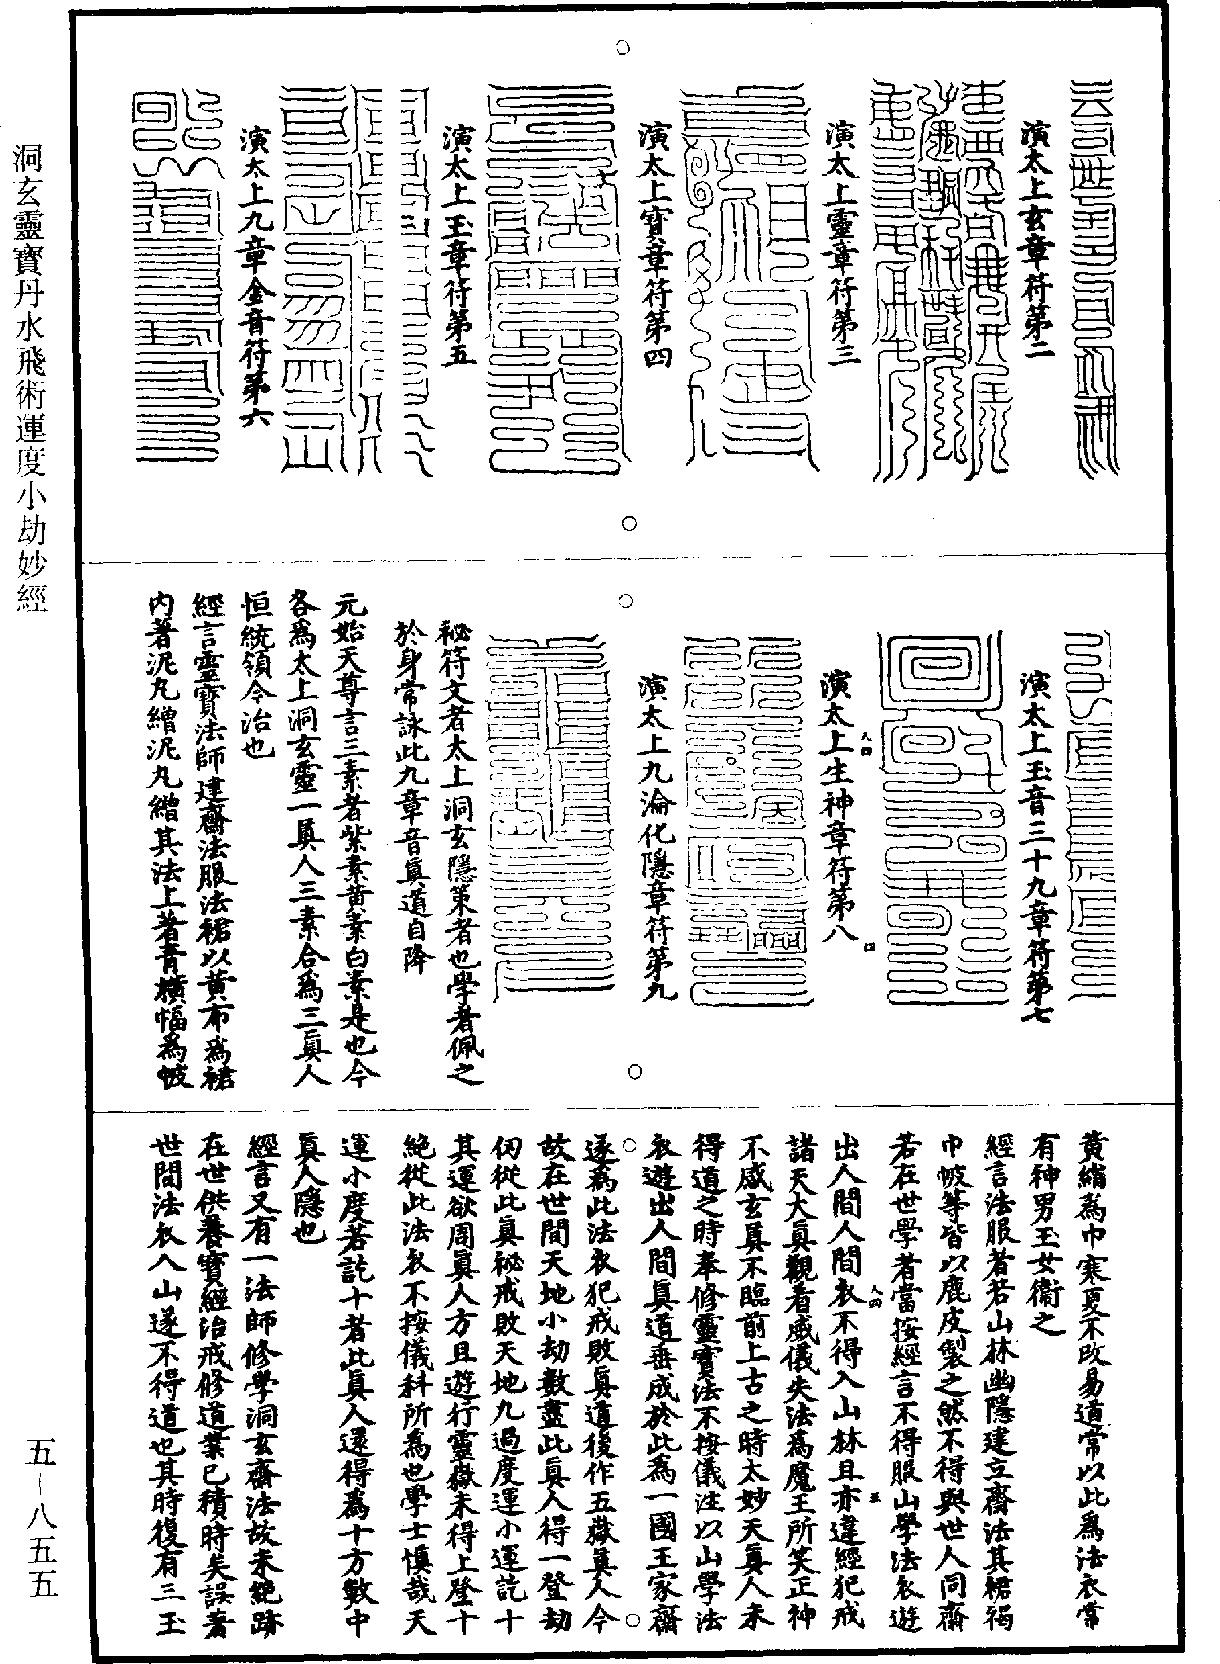 洞玄靈寶丹水飛術運度小劫妙經
五-八五五
演太上玄章符第二
演太上靈章符第三
演太上寶章符第四
演太上玉章符第五
演太上九章金音符第六
演太上玉音三十九章符第七
演太上生神章符第八
演太上九淪化隱章符第九
祕符文者太上洞玄隱策者也學者佩之
於身常詠此九章音眞道自降
元始天尊言三素者紫素黃素白素是也今
各爲太上洞玄靈一眞人三素合爲三眞人
恒統領今治也
經言靈寶法師建齋法服法裙以黃布爲裙
內著泥丸繒泥丸繒其法上著青橫幅爲帔
黃綃爲巾寒夏不改易道常以此爲法衣常
有神男玉女衞之
經言法服者若山林幽隱建立齋法其裙褐
巾帔等皆以鹿皮製之然不得與世人同齋
若在世學者當按經言不得服山學法衣遊
出人間人間衣不得入山林且亦違經犯戒
諸天大眞觀看威儀失法爲魔王所笑正神
不感玄眞不臨前上古之時太妙天眞人未
得道之時奉修靈寶法不按儀注以山學法
衣遊出人間眞道垂成於此爲一國王家齋
遂爲此法衣犯戒敗眞道後作五嶽眞人今
故在世間天地小劫數盡此眞人得一登劫
仞從此眞祕戒敗天地九過度運小運訖十
其運欲周眞人方且遊行靈嶽未得上登十
絕從此法衣不按儀科所爲也學士愼哉天
運小度若訖十者此眞人還得爲十方數中
眞人隱也
經言又有一法師修學洞玄齋法故未絕跡
在世供養寶經治戒修道業已積時矣誤著
世間法衣入山遂不得道也其時復有三玉